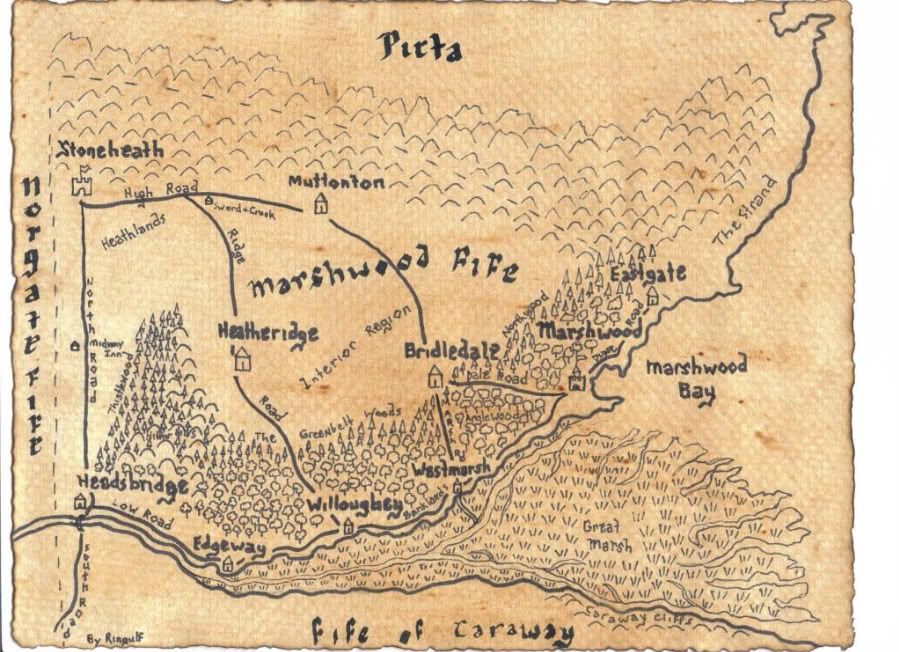 Pirta
Stoneheath
High Road
Muttonton
Sword+Crook
Norgate Fife
Heathlands
Ridge
The Strand
Marshwood Fife
Eastgate
North Road
Midway
Inn
Thistlewood
Heatheridge
Interior Region
Northwood
Marshwood
Dune Road
Marshwood
Bay
Bridledale
Dale Road
Tanglewood
Road
The Greenbelt Woods
Westmarsh
Headsbridge
Low Road
Willougbey
Bankland
Edgeway
Great
Marsh
South Road
Caraway Cliffs
By Ringulf
Fife of Caraway